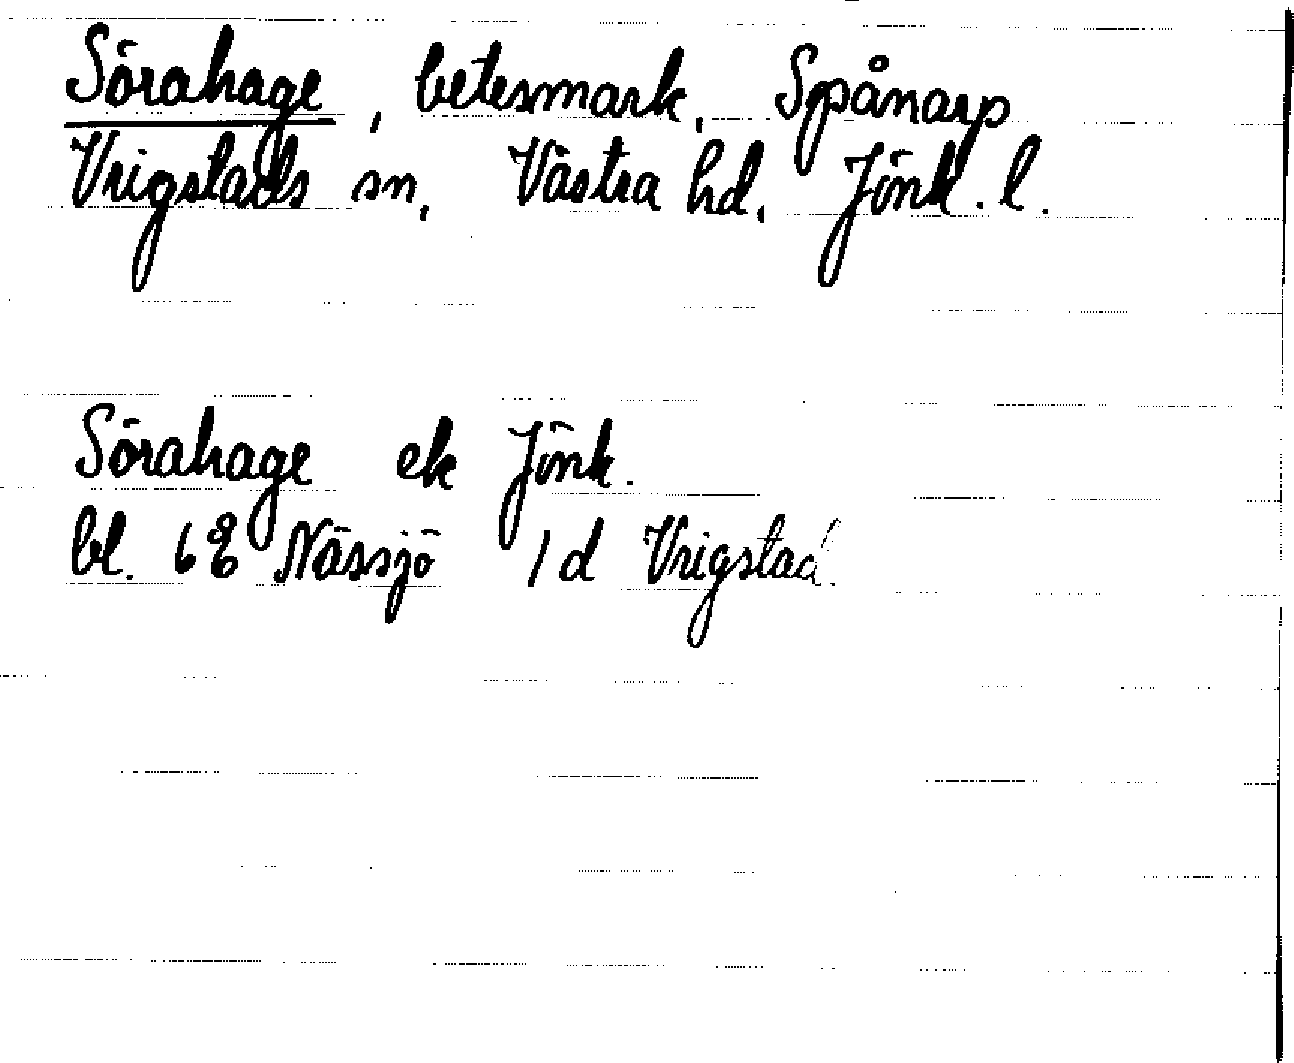 Sörahage, betesmark, Spånarp
Vrigstads sn, Västra hd, Jönk. l.
Sörahage ek Jönk.
bl. 6E Nässjö 1d Vrigstad